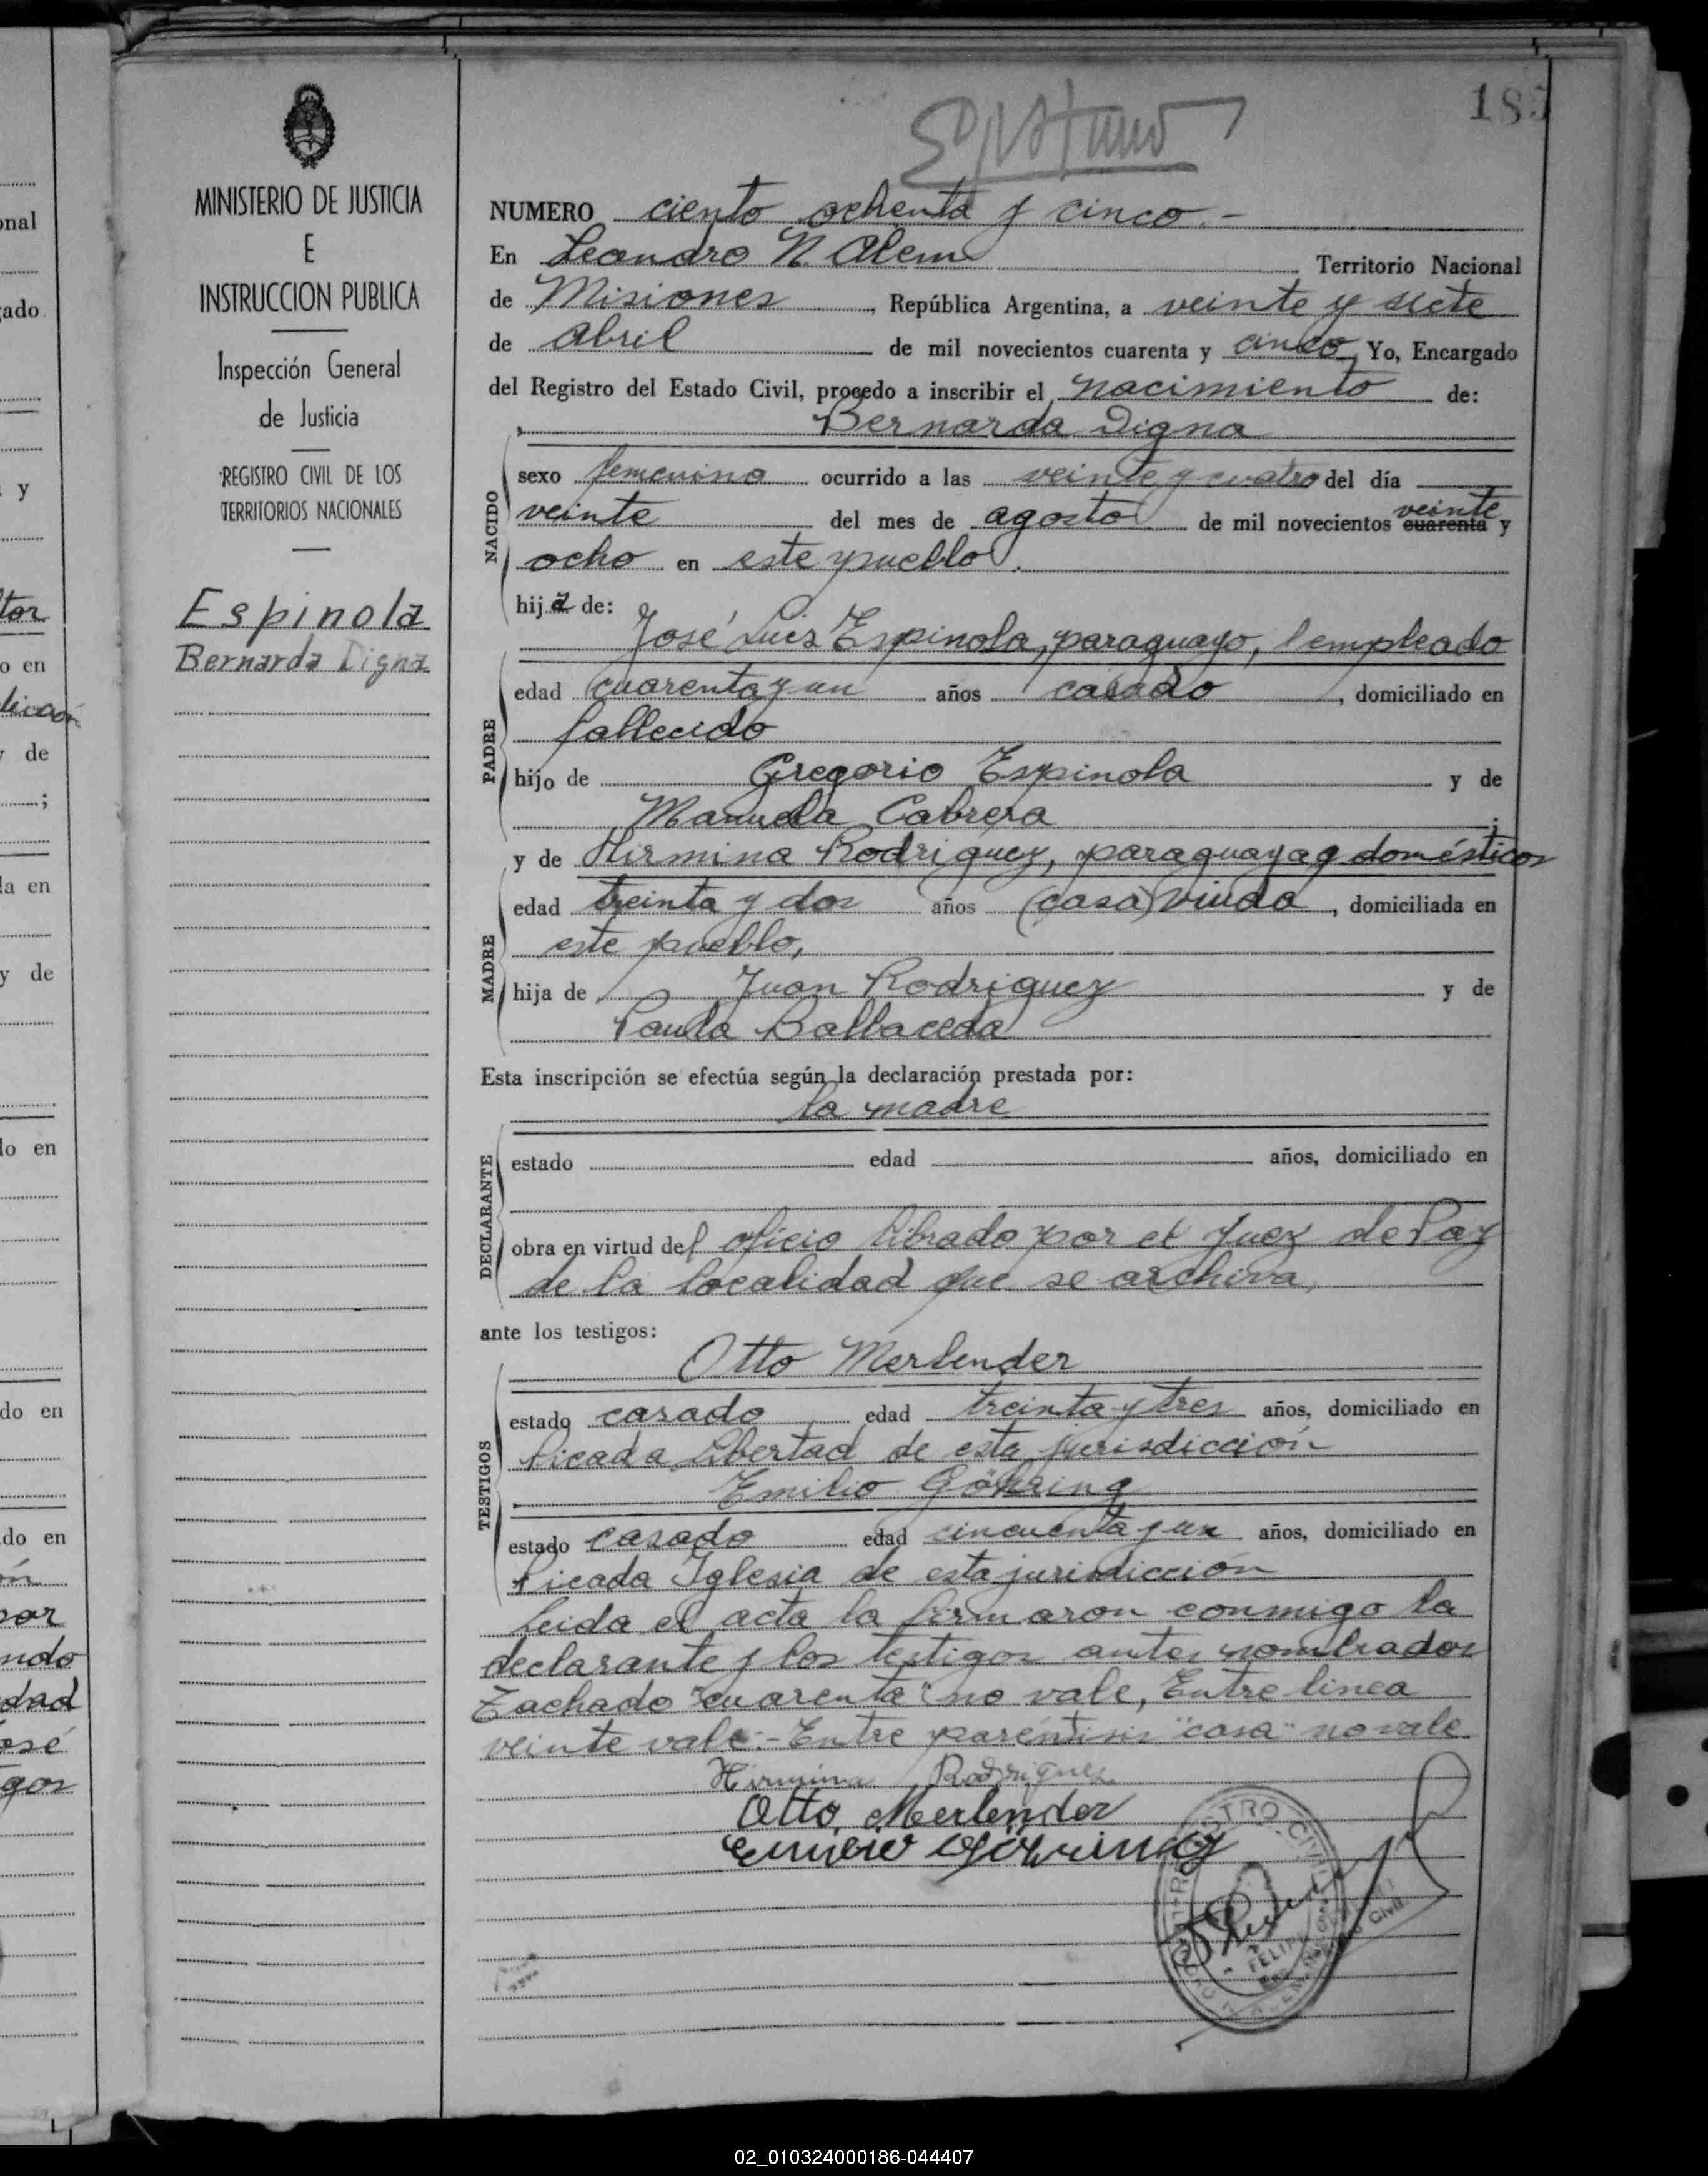 185
NUMERO ciento ochenta y cinco.-
En Leandro N. Alem Territorio Nacional
de Misiones, República Argentina, a veinte y siete
de abril de mil novecientos cuarenta y cinco, Yo, Encargado
del Registro del Estado Civil, procedo a inscribir el nacimiento de:
Bernarda Digna
NACIDO
sexo femenino ocurrido a las veinte y cuatro del día
veinte del mes de agosto de mil novecientos cuarenta veinte y
ocho en este pueblo.
hija de:
José Luis Espinola, paraguayo, empleado
PADRE
edad cuarenta y un años casado, domiciliado en
fallecido
hijo de Gregorio Espinola y de
Manuela Cabrera;
y de Hirmina Rodriguez, paraguaya, q. domésticos
MADRE
edad treinta y dos años (casa) viuda, domiciliada en
este pueblo,
hija de Juan Rodriguez y de
Paula Ballaceda
Esta inscripción se efectúa según la declaración prestada por:
la madre
DECLARANTE
estado edad años, domiciliado en
obra en virtud del oficio librado por el Juez de Paz
de la localidad que se archiva,
ante los testigos:
Otto Merlender
TESTIGOS
estado casado edad treinta y tres años, domiciliado en
Picada Libertad de esta jurisdicción
Emilio Göhring
estado casado edad cincuenta y un años, domiciliado en
Picada Iglesia de esta jurisdicción
Leida el acta la firmaron conmigo la
declarante y los testigos antes nombrados
Tachado "cuarenta" no vale, Entre linea
veinte vale.- Entre paréntisis "casa" no vale.
Hirmina Rodriguez
Otto Merlender
Emilio Göhring
MINISTERIO DE JUSTICIA
E
INSTRUCCION PUBLICA
Inspección General
de Justicia
REGISTRO CIVIL DE LOS
TERRITORIOS NACIONALES
Espinola
Bernarda Digna
02_010324000186-044407